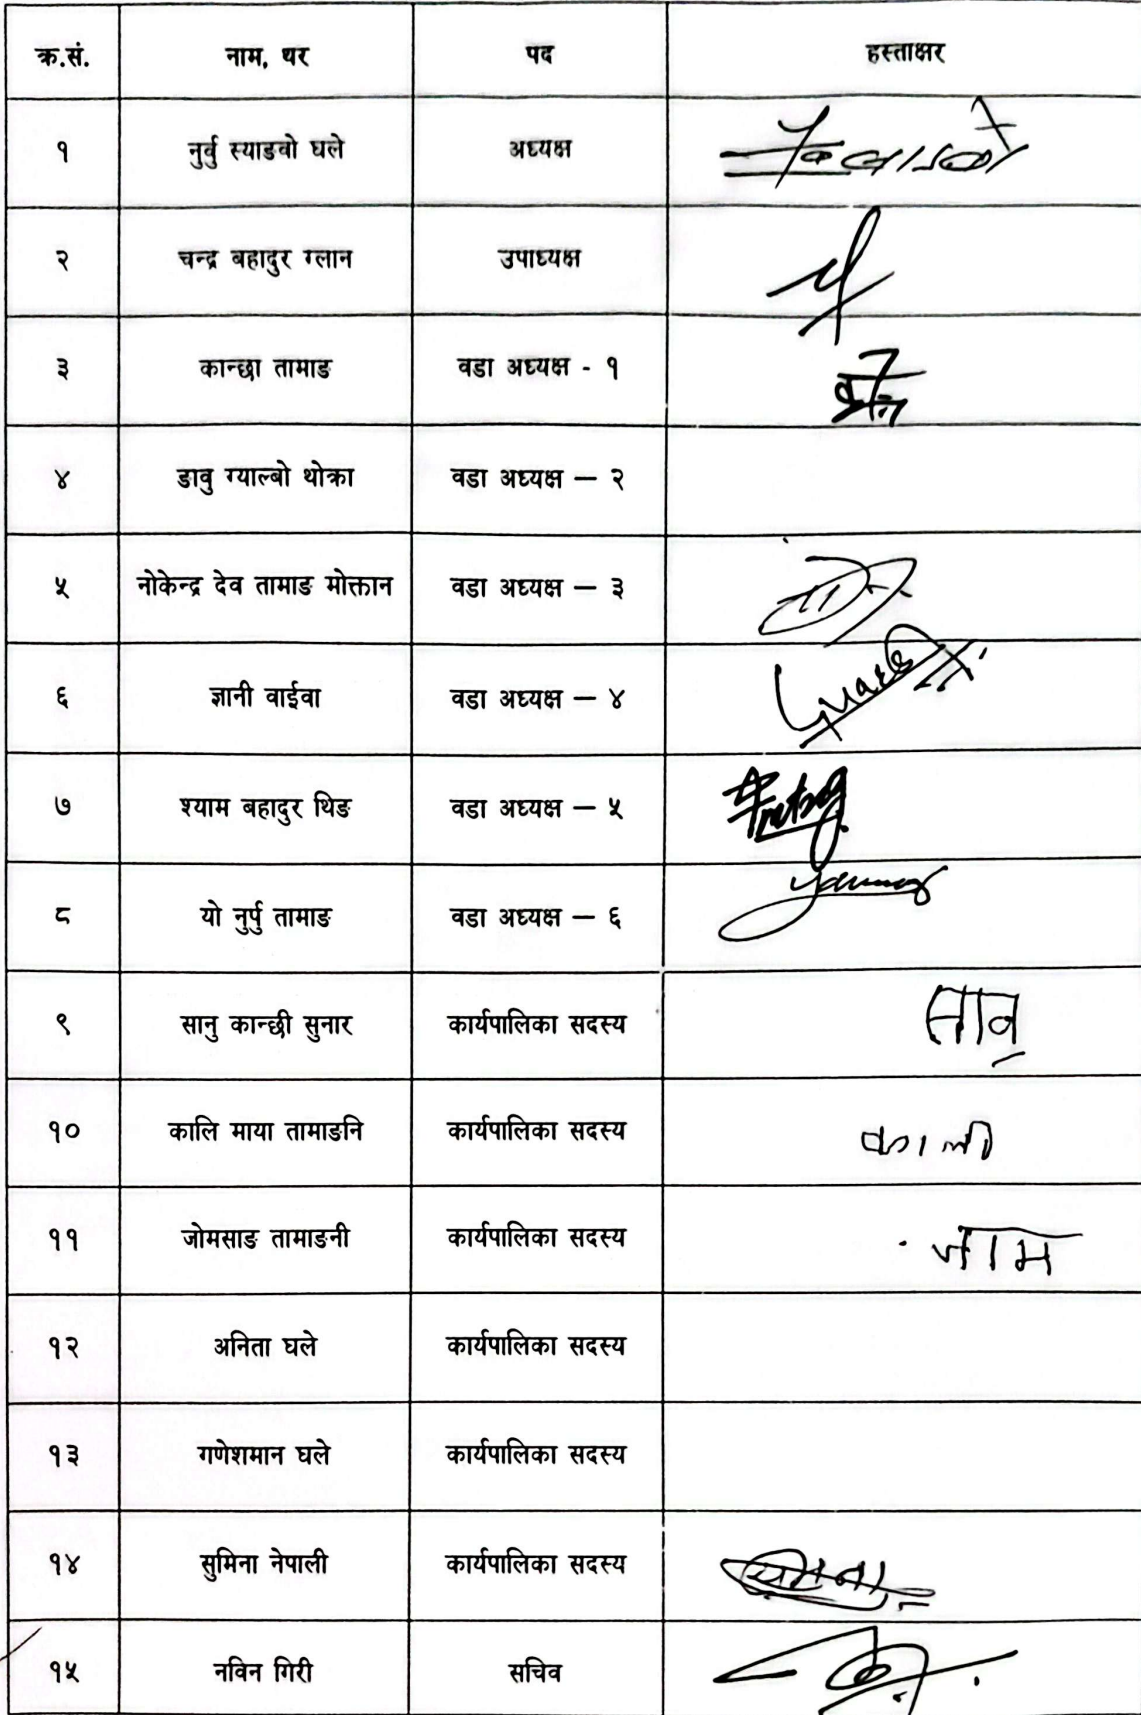 क्र.सं. नाम, थर पद हस्ताक्षर
१ नुर्वु स्याङवो घले अध्यक्ष
२ चन्द्र बहादुर ग्लान उपाध्यक्ष
३ कान्छा तामाङ वडा अध्यक्ष - १
४ डावु ग्याल्बो थोक्रा वडा अध्यक्ष — २
५ नोकेन्द्र देव तामाङ मोक्तान वडा अध्यक्ष — ३
६ ज्ञानी वाईवा वडा अध्यक्ष — ४
७ श्याम बहादुर थिङ वडा अध्यक्ष — ५
८ यो नुर्पु तामाङ वडा अध्यक्ष — ६
९ सानु कान्छी सुनार कार्यपालिका सदस्य सानु
१० कालि माया तामाङनि कार्यपालिका सदस्य काली
११ जोमसाङ तामाङनी कार्यपालिका सदस्य
१२ अनिता घले कार्यपालिका सदस्य
१३ गणेशमान घले कार्यपालिका सदस्य
१४ सुमिना नेपाली कार्यपालिका सदस्य
१५ नविन गिरी सचिव